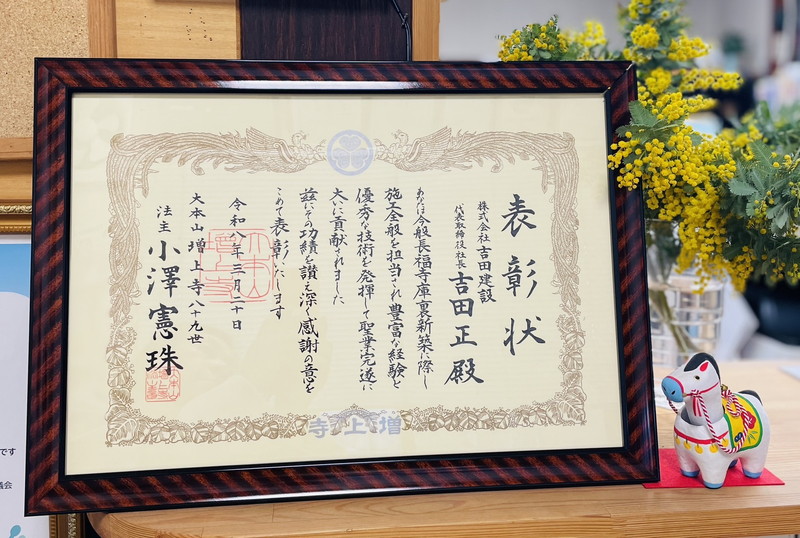 表彰状
株式会社吉田建設
代表取締役社長 吉田正殿
あなたは今般長福寺庫裏新築に際し
施工全般を担当され豊富な経験と
優秀な技術を発揮して聖業完遂に
大いに貢献されました
茲にその功績を讃え深く感謝の意を
こめて表彰いたします
令和八年三月二十日
大本山増上寺八十九世
法主 小澤憲珠
寺上増
です
議会